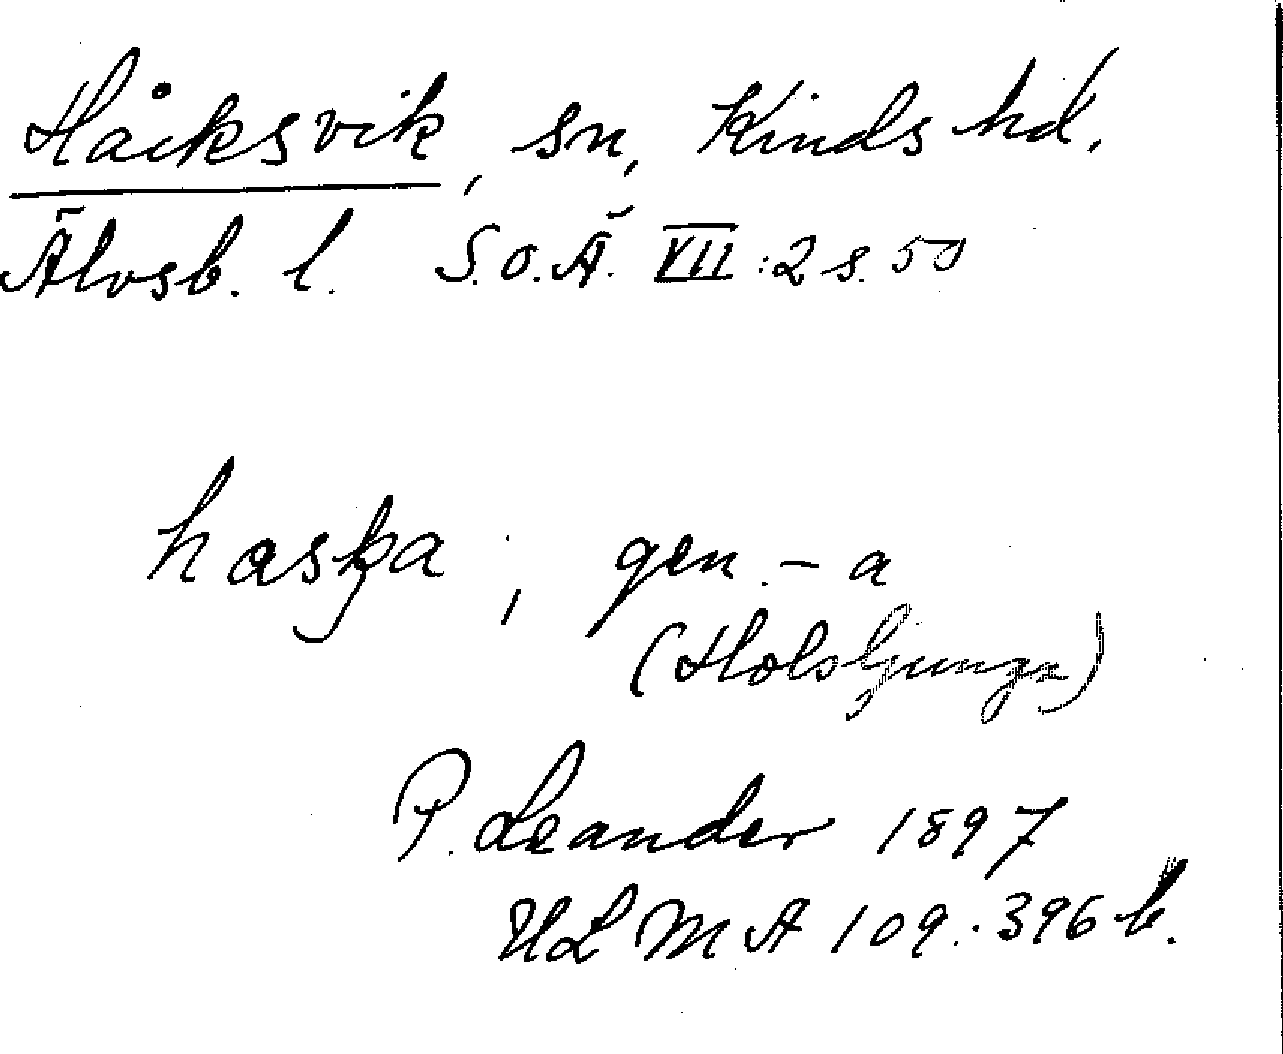 Håcksvik, sn, Kinds hd.
Älvsb. l. S.O.Ä. VII:2 s. 50
haska, gen. -a
(Holsljunga)
P. Leander 1897
ULMA 109:396 b.